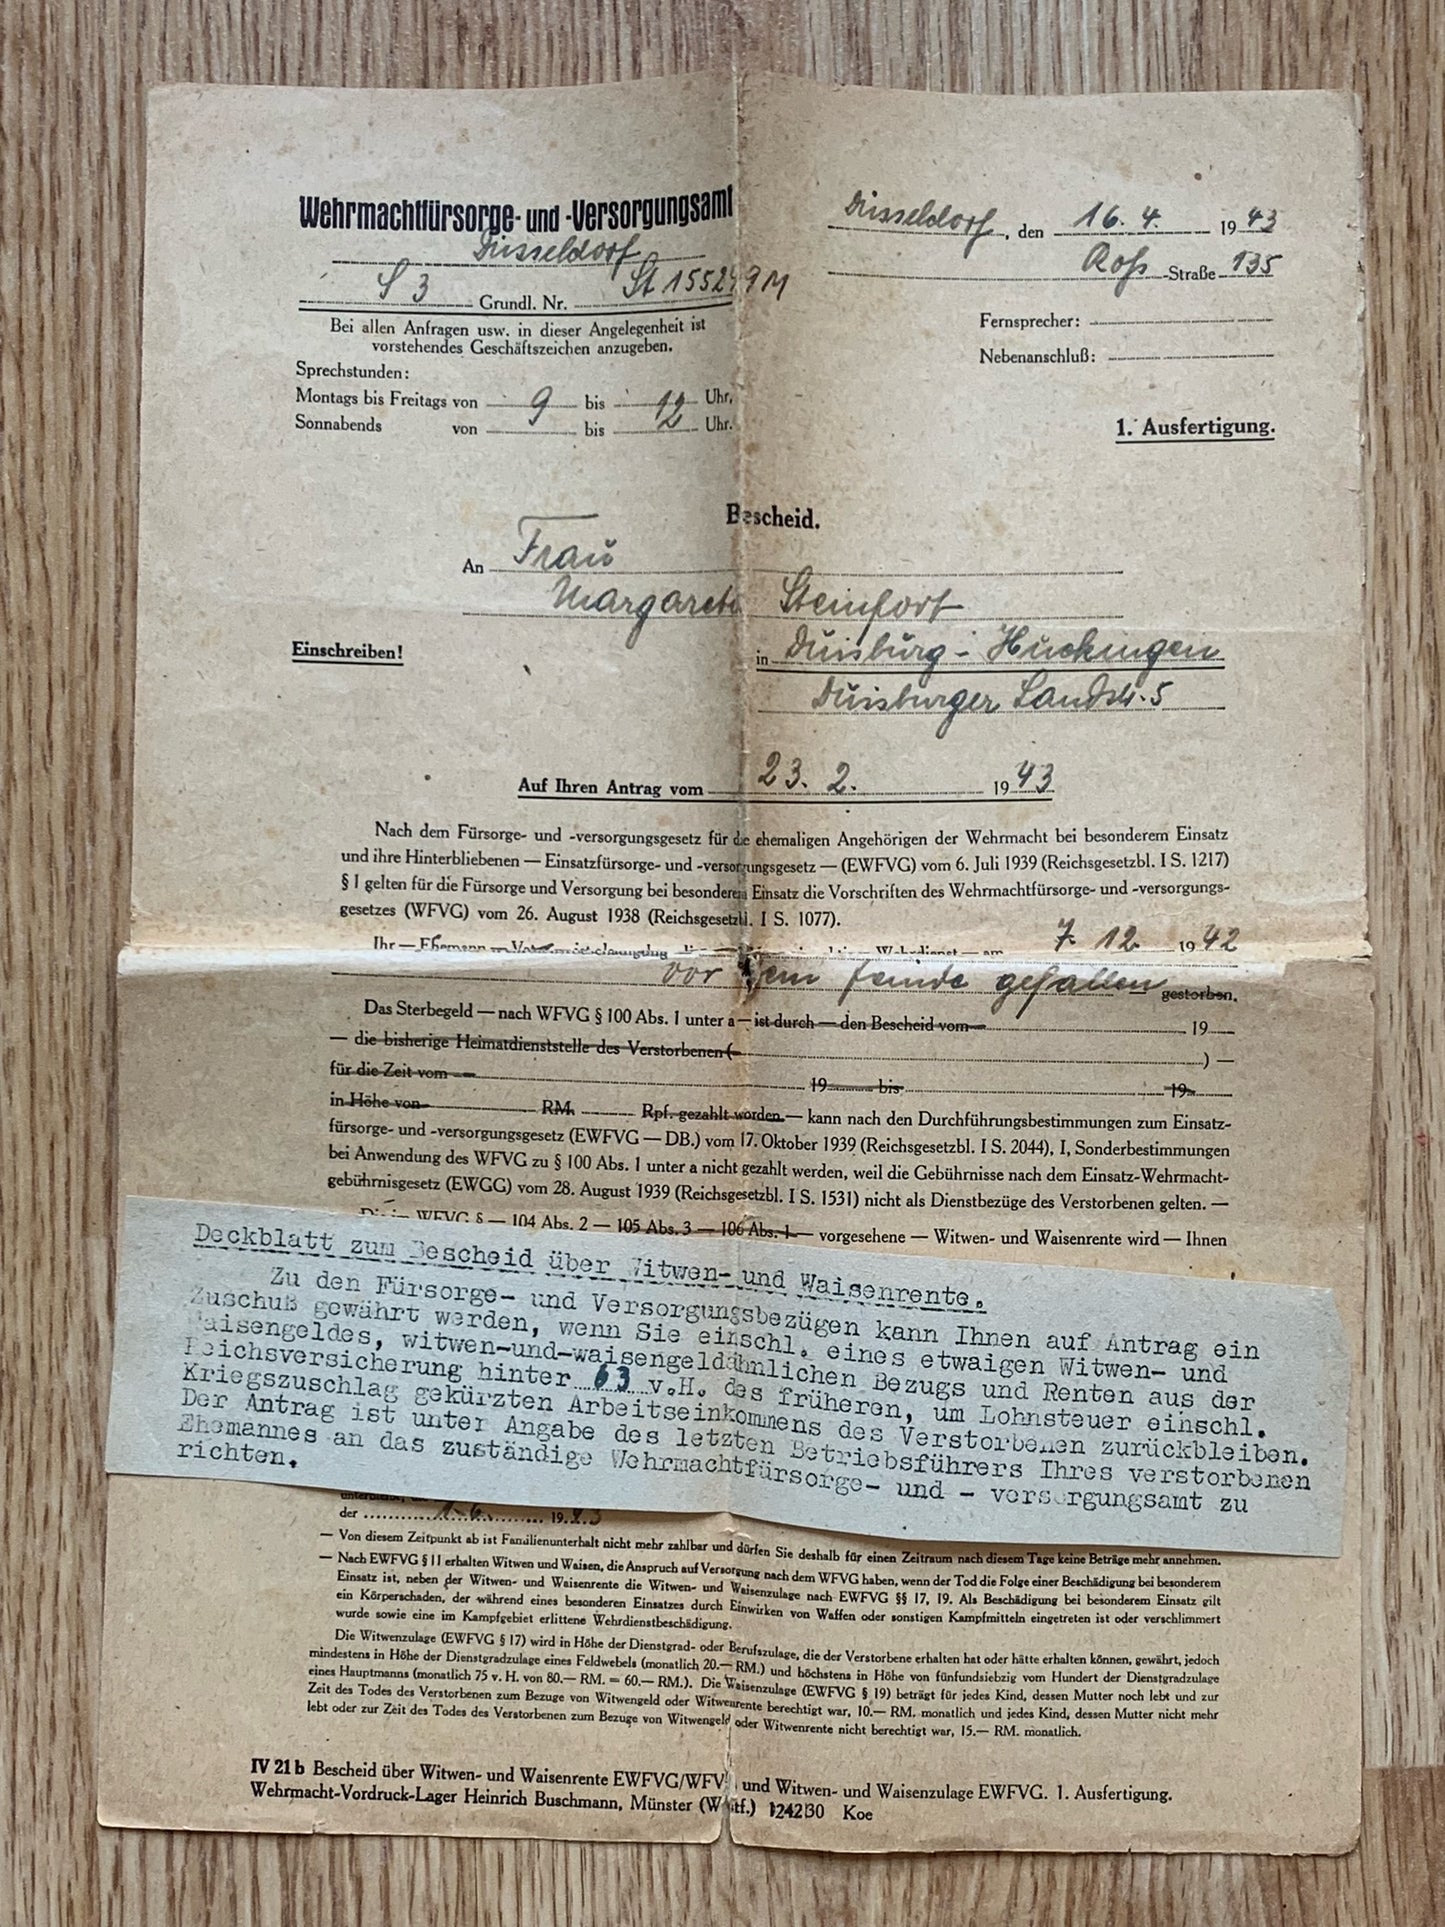 Wehrmachtfürsorge- und -Versorgungsamt
Düsseldorf
S 3 Grundl. Nr. St 155249 M
Bei allen Anfragen usw. in dieser Angelegenheit ist
vorstehendes Geschäftszeichen anzugeben.
Sprechstunden:
Montags bis Freitags von 9 bis 12 Uhr,
Sonnabends von bis 12 Uhr.
Düsseldorf, den 16. 4. 1943
Roß-Straße 135
Fernsprecher:
Nebenanschluß:
1. Ausfertigung.
Bescheid.
An Frau
Margarete Steinfort
Einschreiben!
in Duisburg-Huckingen
Duisburger Landstr. 5
Auf Ihren Antrag vom 23. 2. 1943
Nach dem Fürsorge- und -versorgungsgesetz für die ehemaligen Angehörigen der Wehrmacht bei besonderem Einsatz
und ihre Hinterbliebenen — Einsatzfürsorge- und -versorgungsgesetz — (EWFVG) vom 6. Juli 1939 (Reichsgesetzbl. I S. 1217)
§ 1 gelten für die Fürsorge und Versorgung bei besonderem Einsatz die Vorschriften des Wehrmachtfürsorge- und -versorgungs-
gesetzes (WFVG) vom 26. August 1938 (Reichsgesetzbl. I S. 1077).
Ihr — Ehemann — Vater Wehrdienst — am 7. 12. 1942
vor dem Feinde gefallen gestorben.
Das Sterbegeld — nach WFVG § 100 Abs. 1 unter a — ist durch — den Bescheid vom — 19
— die bisherige Heimatdienststelle des Verstorbenen ( ) —
für die Zeit vom — 19 bis 19
in Höhe von RM. Rpf. gezahlt worden — kann nach den Durchführungsbestimmungen zum Einsatz-
fürsorge- und -versorgungsgesetz (EWFVG — DB.) vom 17. Oktober 1939 (Reichsgesetzbl. I S. 2044), I, Sonderbestimmungen
bei Anwendung des WFVG zu § 100 Abs. 1 unter a nicht gezahlt werden, weil die Gebührnisse nach dem Einsatz-Wehrmacht-
gebührnisgesetz (EWGG) vom 28. August 1939 (Reichsgesetzbl. I S. 1531) nicht als Dienstbezüge des Verstorbenen gelten. —
Die im WFVG § — 104 Abs. 2 — 105 Abs. 3 — 106 Abs. 1 — vorgesehene — Witwen- und Waisenrente wird — Ihnen
Deckblatt zum Bescheid über Witwen- und Waisenrente.
Zu den Fürsorge- und Versorgungsbezügen kann Ihnen auf Antrag ein
Zuschuß gewährt werden, wenn Sie einschl. eines etwaigen Witwen- und
Waisengeldes, witwen-und-waisengeldähnlichen Bezugs und Renten aus der
Reichsversicherung hinter 63 v.H. des früheren, um Lohnsteuer einschl.
Kriegszuschlag gekürzten Arbeitseinkommens des Verstorbenen zurückbleiben.
Der Antrag ist unter Angabe des letzten Betriebsführers Ihres verstorbenen
Ehemannes an das zuständige Wehrmachtfürsorge- und - versorgungsamt zu
richten.
der 1. 6. 1943
— Von diesem Zeitpunkt ab ist Familienunterhalt nicht mehr zahlbar und dürfen Sie deshalb für einen Zeitraum nach diesem Tage keine Beträge mehr annehmen.
— Nach EWFVG § 11 erhalten Witwen und Waisen, die Anspruch auf Versorgung nach dem WFVG haben, wenn der Tod die Folge einer Beschädigung bei besonderem
Einsatz ist, neben der Witwen- und Waisenrente die Witwen- und Waisenzulage nach EWFVG §§ 17, 19. Als Beschädigung bei besonderem Einsatz gilt
ein Körperschaden, der während eines besonderen Einsatzes durch Einwirken von Waffen oder sonstigen Kampfmitteln eingetreten ist oder verschlimmert
wurde sowie eine im Kampfgebiet erlittene Wehrdienstbeschädigung.
Die Witwenzulage (EWFVG § 17) wird in Höhe der Dienstgrad- oder Berufszulage, die der Verstorbene erhalten hat oder hätte erhalten können, gewährt, jedoch
mindestens in Höhe der Dienstgradzulage eines Feldwebels (monatlich 20.— RM.) und höchstens in Höhe von fünfundsiebzig vom Hundert der Dienstgradzulage
eines Hauptmanns (monatlich 75 v. H. von 80.— RM. = 60.— RM.). Die Waisenzulage (EWFVG § 19) beträgt für jedes Kind, dessen Mutter noch lebt und zur
Zeit des Todes des Verstorbenen zum Bezuge von Witwengeld oder Witwenrente berechtigt war, 10.— RM. monatlich und jedes Kind, dessen Mutter nicht mehr
lebt oder zur Zeit des Todes des Verstorbenen zum Bezuge von Witwengeld oder Witwenrente nicht berechtigt war, 15.— RM. monatlich.
IV 21 b Bescheid über Witwen- und Waisenrente EWFVG/WFVG und Witwen- und Waisenzulage EWFVG. 1. Ausfertigung.
Wehrmacht-Vordruck-Lager Heinrich Buschmann, Münster (Westf.) 124230 Koe